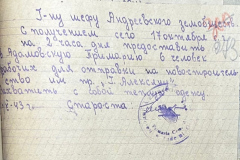 Г-ну шефу Андреевского земобщества
С получением сего 17 октября
на 2 часа дня предоставить
в Адамовскую Примарию 6 человек
рабочих для отправки на новостроитель
ство им. пр. Г. Алексяну
захватить с собой теплую одежу.
43 г. Староста:
243